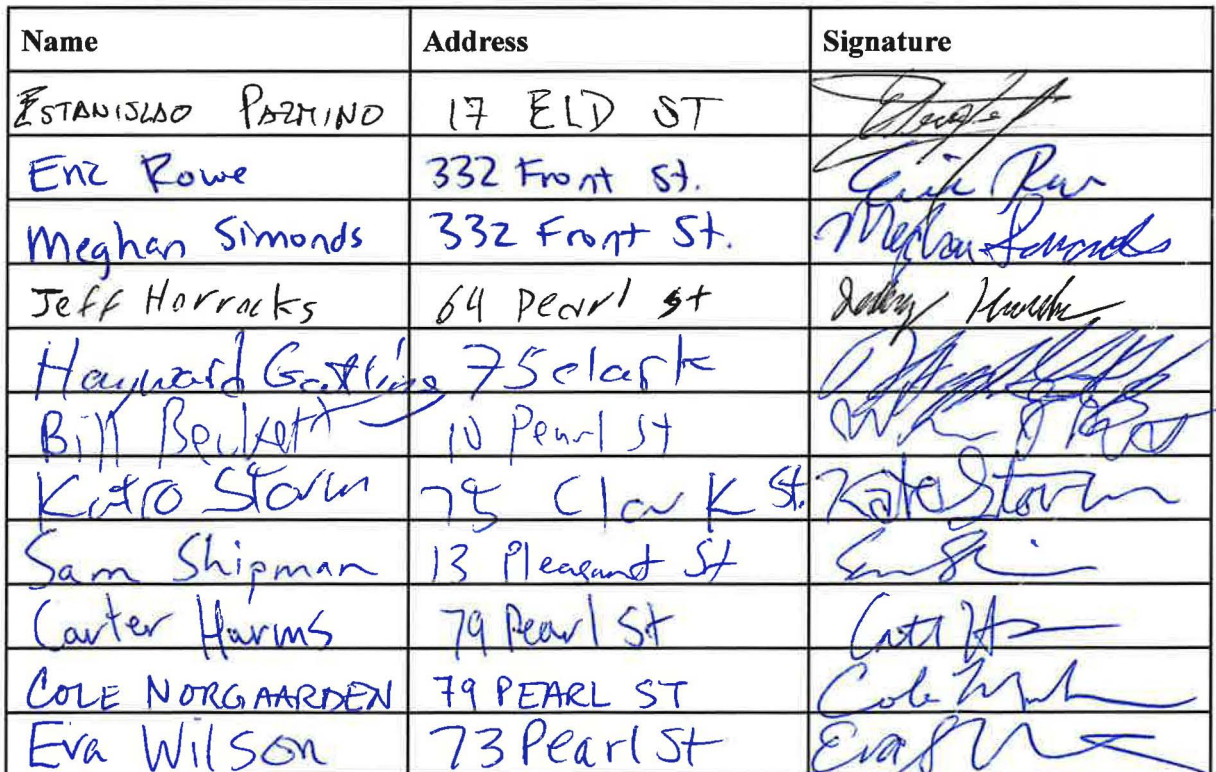 Name Address Signature
ESTANISLAO PAZMINO 17 ELD ST
Eric Rowe 332 Front St. Eric Rowe
Meghan Simonds 332 Front St. Meghan Simonds
Jeff Horrocks 64 Pearl st
Hayward Gatling 75 clark
Bill Beckett 10 Pearl St
Kate Storm 75 Clark St. Kate Storm
Sam Shipman 13 Pleasant St
Carter Harms 79 Pearl St
COLE NORGAARDEN 79 PEARL ST Cole
Eva Wilson 73 Pearl St Eva